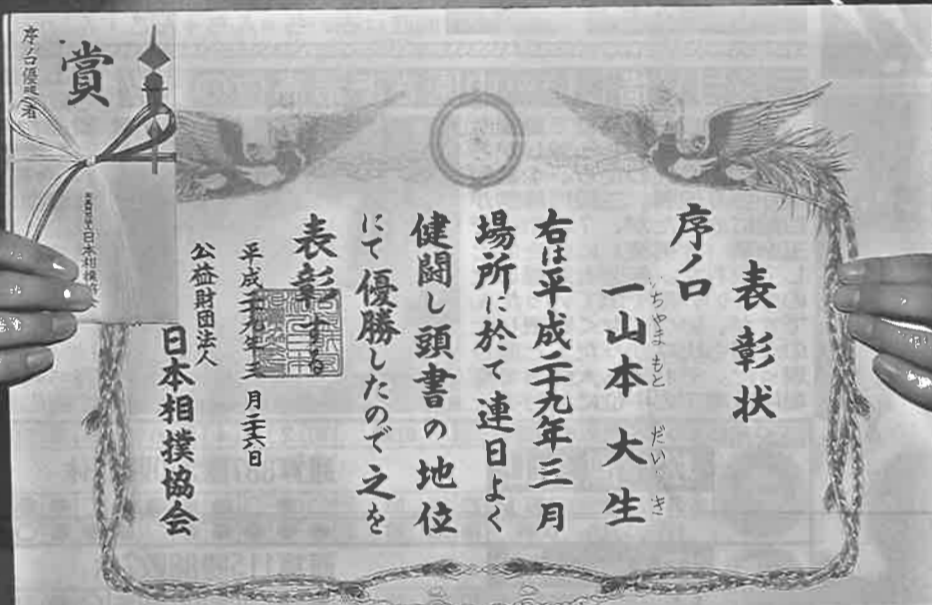 表彰状
序ノ口
一山本 大生
いちやま もと だい き
右は平成二十九年三月
場所に於て連日よく
健闘し頭書の地位
にて優勝したので之を
表彰する
平成二十九年三月二十六日
公益財団法人
日本相撲協会
賞
序ノ口優勝者
日本相撲協会